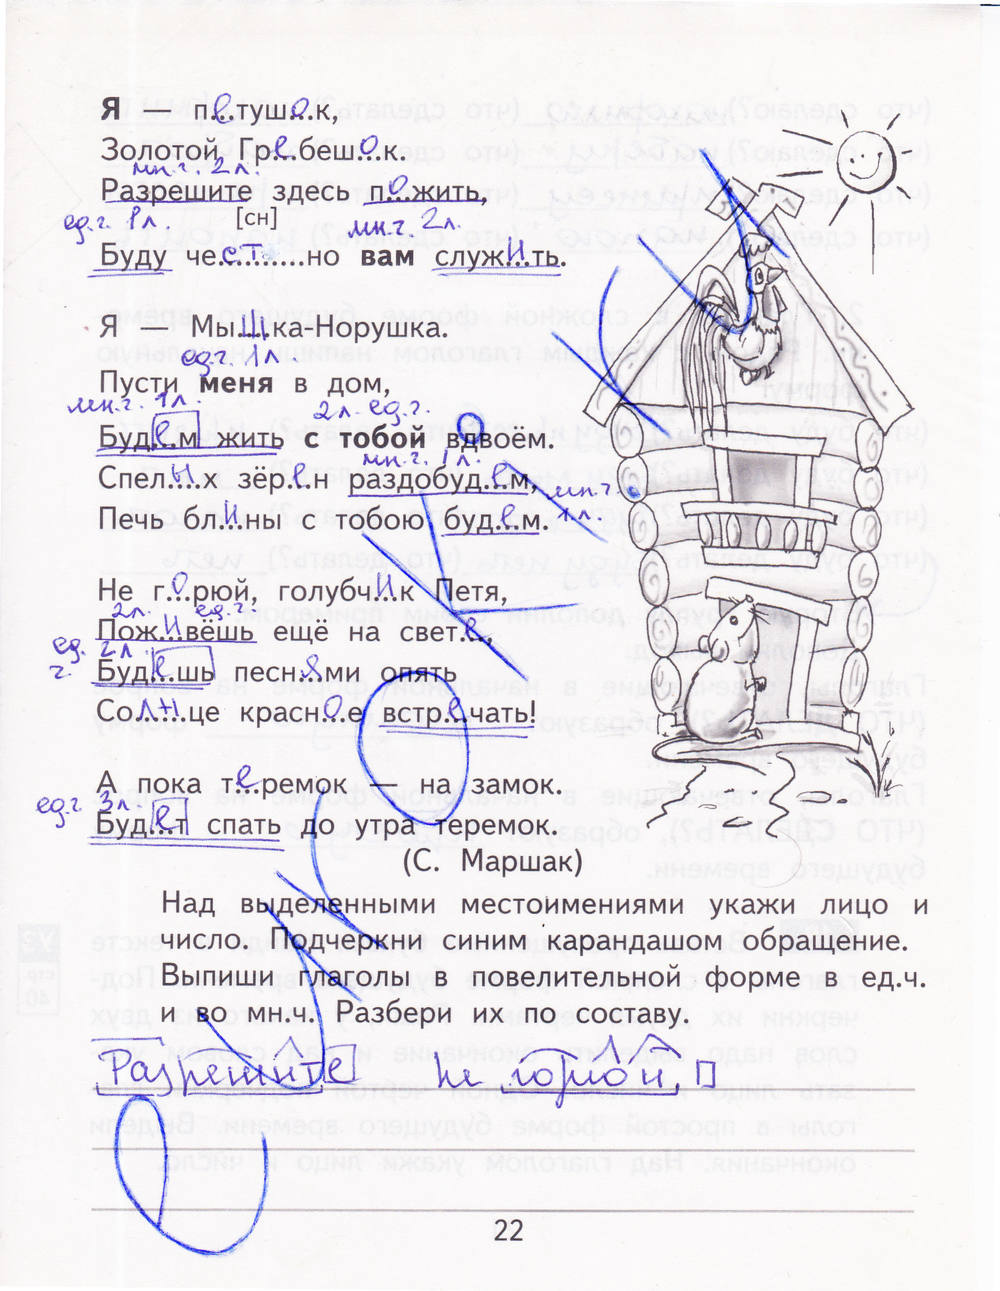 Я — петушок,
Золотой Гребешок.
мн.ч. 2 л.
Разрешите здесь пожить,
ед.ч. 1л. [сн] мн.ч. 2л.
Буду честно вам служить.
Я — Мышка-Норушка.
ед.ч. 1л.
Пусти меня в дом,
мн.ч. 1л. 2л. ед.ч.
Будем жить с тобой вдвоём.
мн.ч. 1л.
Спелых зёрен раздобудем, мн.ч.
Печь блины с тобою будем. 1л.
Не горюй, голубчик Петя,
2л. ед.ч.
Поживёшь ещё на свете,
ед. ч. 2л.
Будешь песнями опять
Солнце красное встречать!
А пока теремок — на замок.
ед.ч 3л.
Будет спать до утра теремок.
(С. Маршак)
Над выделенными местоимениями укажи лицо и
число. Подчеркни синим карандашом обращение.
Выпиши глаголы в повелительной форме в ед.ч.
и во мн.ч. Разбери их по составу.
Разрешите не горюй, п
22